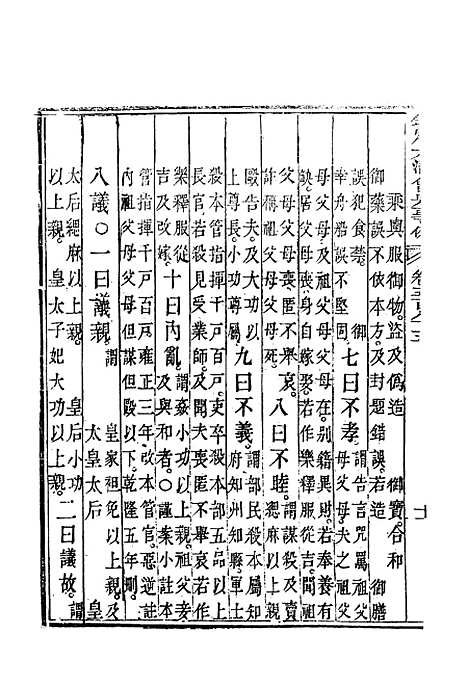 乘輿服御物。盜及偽造　御寶。合和
御藥。誤不依本方。及封題錯誤。若造　御膳
誤犯食禁。　御
幸舟船。誤不堅固。
七曰不孝。
謂告言呪罵祖父
母父母。夫之祖父
母父母。及祖父母父母在。別籍異財。若奉養有
缺。居父母喪。身自嫁娶。若作樂釋服從吉。聞祖
父母父母喪。匿不舉哀。
詐稱祖父母父母死。
八曰不睦。
謂謀殺及賣
緦麻以上親。
毆告夫。及大功以
上尊長。小功尊屬。
九曰不義。
謂部民殺本屬知
府知州知縣。軍士
殺本管指揮千戶百戶。吏卒殺本部五品以上
長官。若殺見受業師。及聞夫喪。匿不舉哀。若作
樂釋服從
吉。及改嫁。
十曰內亂。
謂姦小功以上親。祖父妾
及與和者。○謹案小註本
管指揮千戶百戶。雍正三年。改本管官。惡逆註
內祖父母父母但毆以下。乾隆五年刪。
八議。○一曰議親。
謂　皇家袒免以上親。及
太皇太后　皇
太后緦麻以上親。　皇后小功
以上親。皇太子妃大功以上親。
二曰議故。
謂